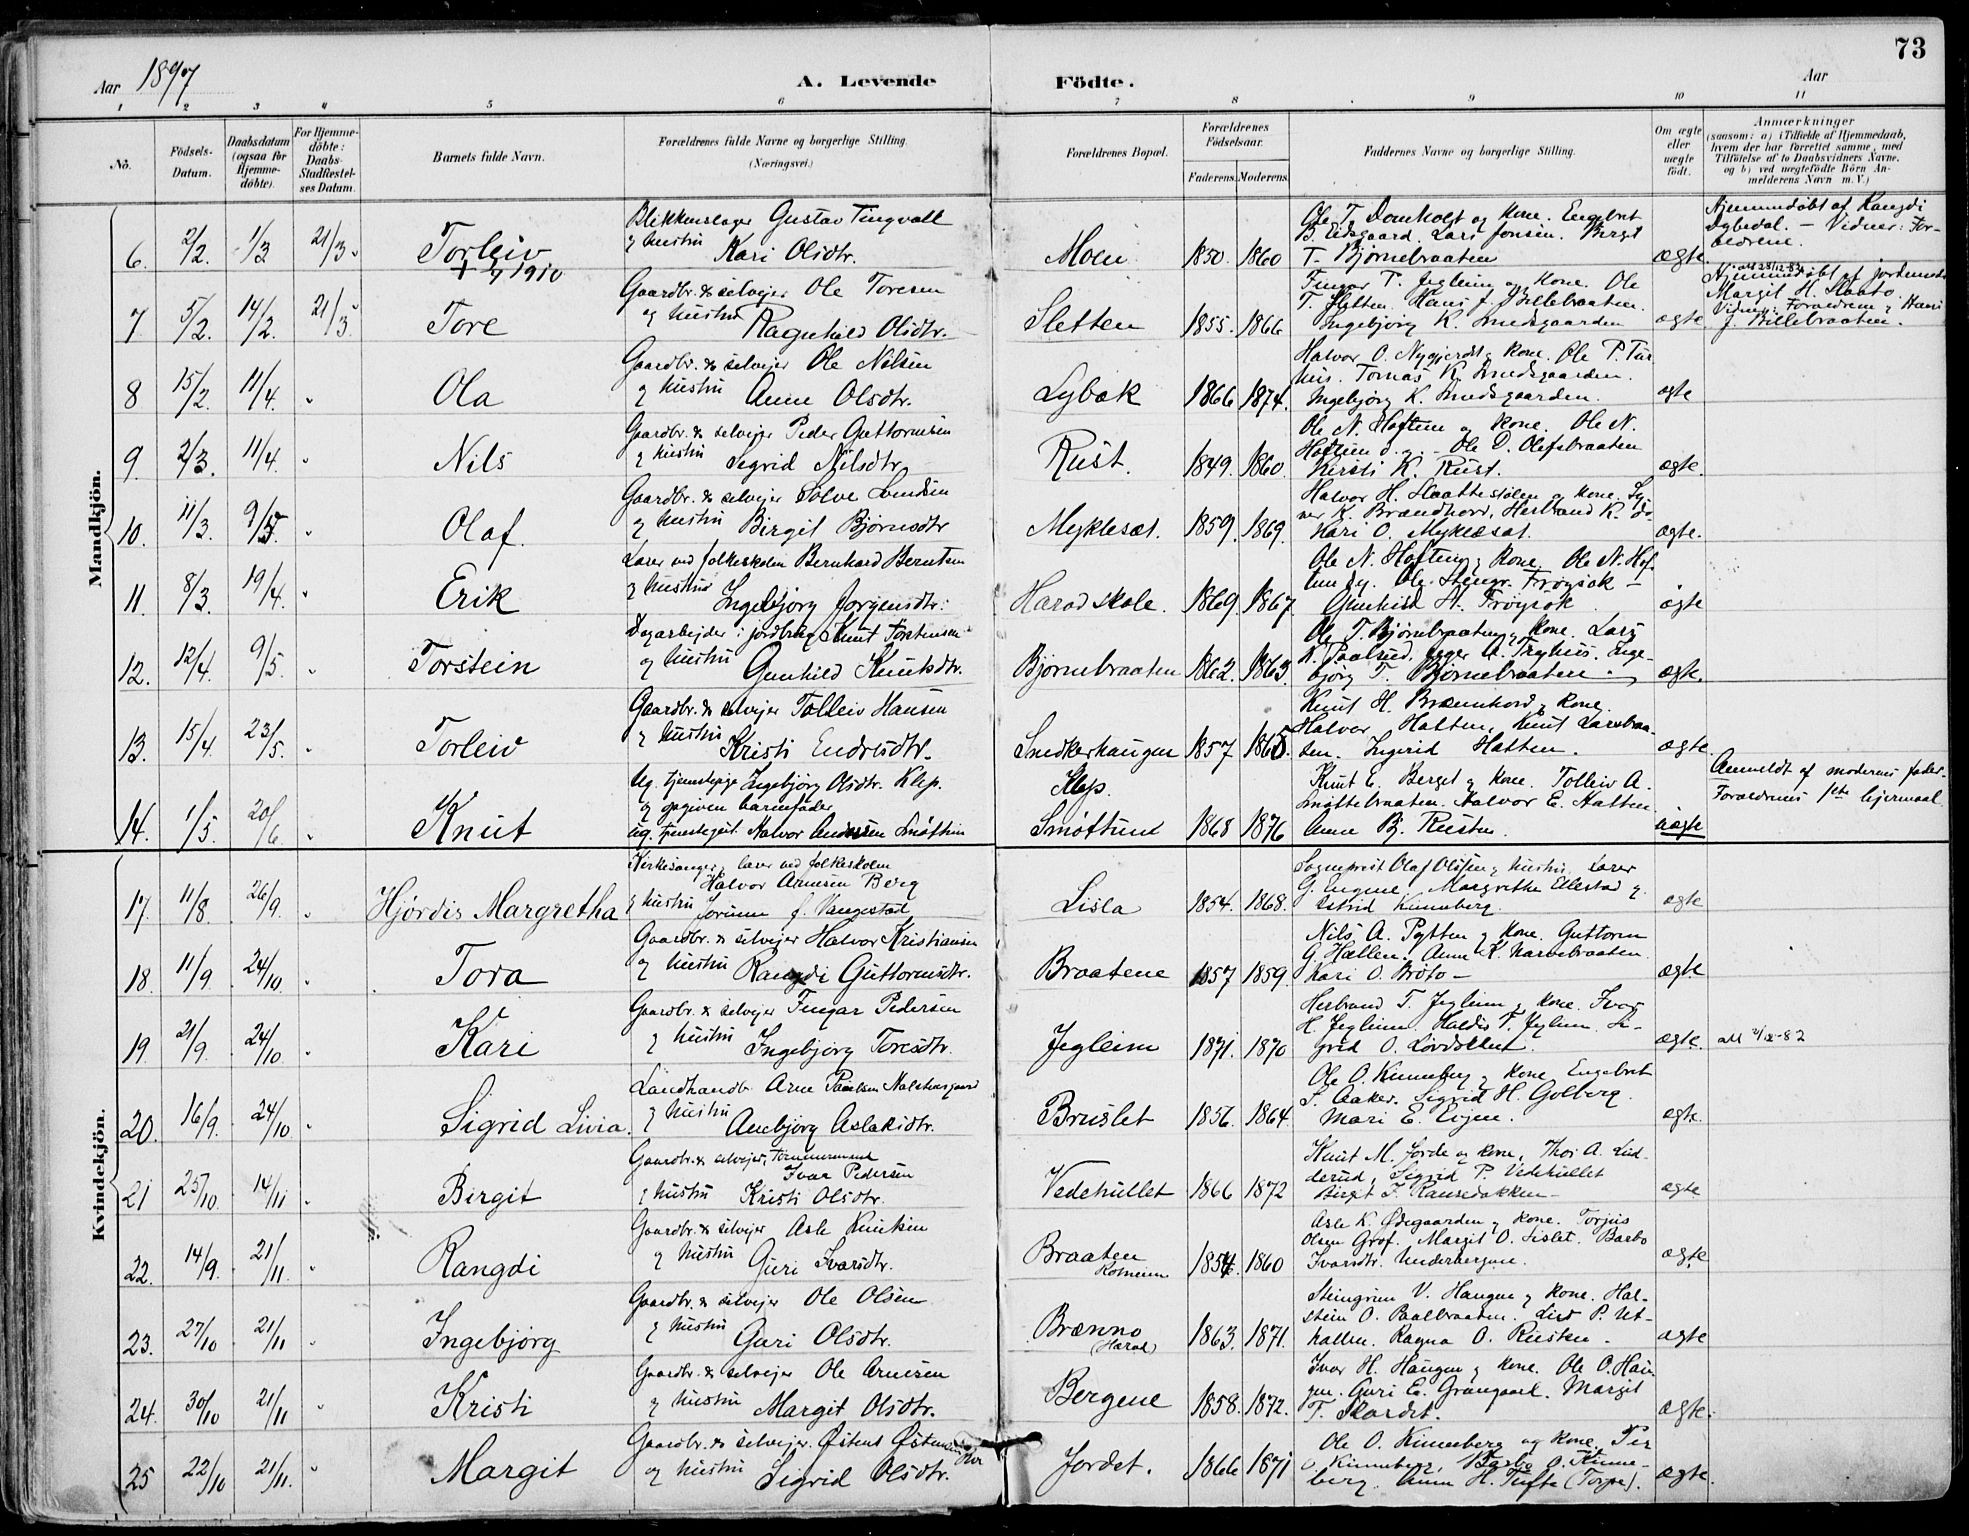 73
Aar 1897
A. Levende Födte.
Aar
1 2 3 4 5 6 7 8 9 10 11
No.
Födsels-Datum.
Daabsdatum (ogsaa for Hjemmedöbte).
For Hjemmedöbte: Daabs-Stadfæstelses Datum.
Barnets fulde Navn.
Forældrenes fulde Navne og borgerlige Stilling (Næringsvei.)
Forældrenes Bopæl.
Forældrenes Födselsaar.
Faderens. Moderens.
Faddernes Navne og borgerlige Stilling.
Om ægte eller uægte födt.
Anmærkninger (saasom: a) i Tilfælde af Hjemmedaab, hvem der har forrettet samme, med Tilföielse af to Daabsvidners Navne, og b) ved uegtefödte Börn Anmelderens Navn m. V.)
Mandkjön.
6. 2/2. 1/3 21/3 Torleiv
Blikkenslager Gustav Tingvall
og hustru Kari Olsdtr.
Moen 1850. 1860
Ole T. Domholt og kone. Engebret
B. Eidsgaard. Lars Jonsen. Birgit
T. Bjørnebraaten
ægte
Hjemmedøbt af Rangdi
Dybedal. – Vidner: For-
ældrene.
7. 5/2. 14/2. 21/3 Tore
Gaardbr. & selveier Ole Toresen
og hustru Ragnhild Olsdtr.
Sletten 1855. 1866
T. Sletten. Hans J. Billebraaten.
Ingebjørg K. Smedsgaarden
ægte
Hjemmedøbt af jordemoder
Margit H. Slaato.
Vidner: Forældrene og Hans
J. Billebraaten.
8 15/2. 11/4. Ola
Gaardbr. & selveier Ole Nilsen
og hustru Anne Olsdtr.
Lybæk 1866 1874.
Halvor O. Nygjerdet og kone. Ole P. Tur
hus. Tomas K. Smedsgaarden.
Ingebjørg K. Smedsgaarden.
ægte
9. 2/3. 11/4. Nils
Gaardbr. & selveier Peder Guttormsen
og hustru Sigrid Nilsdtr.
Rust. 1849. 1860.
Ole N. Hoftun og kone. Ole N.
Hoftun d. y. – Ole D. Olefsbraaten
Kirsti K. Rust.
ægte.
10. 11/3. 9/5. Olaf
Gaardbr. & selveier Sølve Svendsen
og hustru Birgit Bjørnsdtr
Myklesæt. 1859. 1869.
Kari O. Myklesæt.
ægte.
11. 8/3. 19/4. Erik
Lærer ved folkeskolen Bernhard Berntsen
og hustru Ingebjørg Jørgensdtr.
Harad skole. 1869. 1867.
Gunhild H. Trøysok
ægte
12. 12/4. 9/5. Torstein
Dagarbejder i jordbrug Knut Torstensen
og hustru Gunhild Knutsdtr.
Bjørnebraaten 1862. 1863.
Ole T. Bjørnebraaten og kone. Lars
bjørg T. Bjørnebraaten
ægte.
13. 15/4. 23/5. Torleiv
Gaardbr. & selveier Tolleiv Hansen
og hustru Kristi Endresdtr.
Snedkerhaugen 1857 1865.
Knut H. Brænnhovd og kone.
Halvor Hatten. Knut Larsbraa-
ten. Ingerid Hatten.
ægte.
14. 1/5. 20/6. Knut
Ug. tjenstepige Ingebjørg Olsdtr. Klep.
og opgiven barnefader
ug. tjenstegut Halvor Andersen Smøttun
Klep.
Smøttun 1868 1876
Knut E. Berget og kone. Tolleiv A.
Smøttebraaten. Halvor E. Hatten.
Anne Bj. Rusten.
uægte
Anmeldt af moderens fader.
Forældrenes 1ste lejermaal.
Kvindekjön.
17. 11/8. 26/9. Hjørdis Margretha
Kirkesanger & lærer ved folkeskolen
Halvor Arnesen Berg
og hustru Jorunn f. Vangestad
Lisla 1854. 1868.
Sogneprest Olaf Olsen og hustru. Lærer
G. Engene. Margrethe Ellestad og
Astrid Kinneberg.
ægte
18. 11/9. 24/10. Tora
Gaardbr. & selveier Halvor Kristiansen
og hustru Rangdi Guttormsdtr.
Braatene 1857 1859.
Nils A. Pytten og kone. Guttorm
G. Hællen. Anne K. Narvebraaten.
Kari O. Brøto –
ægte
19. 21/9. 24/10. Kari
Gaardbr. & selveier Fingar Pedersen
og hustru Ingebjørg Toresdtr.
Jegleim 1871. 1870
Herbrand T. Jegleim og kone. Ivar
H. Jegleim. Haldis T. Jegleim. Si-
grid O.
ægte.
20. 16/9. 24/10 Sigrid Livia.
Landhandl. Arne Paulsen
og hustru Annbjørg Aslaksdtr.
Bruslet 1856. 1864.
Ole O. Kinneberg og kone. Engebret
S. Aaker. Sigrid H. Golberg.
Mari E. Eijen.
ægte.
21 25/10. 14/11 Birgit
Gaardbr. & selveier, tømmermand
Ivar Pedersen
og hustru Kristi Olsdtr.
Vedehullet 1866 1872
Knut M. Jorde og kone. Thor A. Lud-
derud. Sigrid P. Vedehullet
ægte
22. 14/9. 21/11. Rangdi
Gaardbr. & selveier Asle Knutsen
og hustru Guri Ivarsdtr.
Braaten 1854. 1860
Asle K. Ødegaarden og kone. Torjus
Olsen Grøf. Margit O. Lislet. Barbo
Ivarsdtr. Underbergene.
ægte
23. 27/10 21/11 Ingebjørg
Gaardbr. & selveier Ole Olsen
og hustru Guri Olsdtr.
Brænno
(Harad) 1863. 1871.
Steingrim V. Haugen og kone. Hal-
stein O. Paalbraaten. Lisa P. Ut-
hallen. Ragna O. Rusten.
ægte
24. 30/10 21/11 Kristi
Gaardbr. & selveier Ole Arnesen
og hustru Margit Olsdtr.
Bergene 1858. 1872.
Ivar H. Haugen og kone. Ole O. Hau
gen. Guri E. Grangaard. Margit
T. Skordet.
ægte.
25 22/10 21/11. Margit
Gaardbr. & selveier. Østens Østensen
og hustru Sigrid Olsdtr.
Jordet. 1866 1871
Ole O. Kinneberg og kone. Per
O. Kinneberg. Barbo O. Kinne-
berg. Anne H. Tufte (Torpe).
ægte.